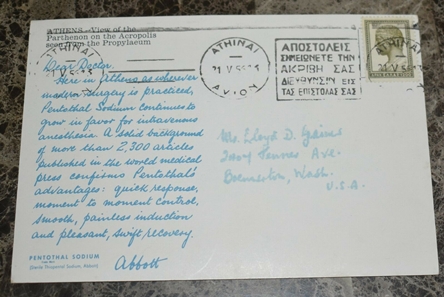 ATHENS – View of the
Parthenon on the Acropolis
seen from the Propylaeum
Dear Doctor:
Here in Athens as wherever
modern surgery is practiced,
Pentothal Sodium continues to
grow in favor for intravenous
anesthesia. A solid background
of more than 2,300 articles
published in the world medical
press confirms Pentothal's
advantages: quick response,
moment to moment control,
smooth, painless induction
and pleasant, swift recovery.
Abbott
PENTOTHAL SODIUM
(Sterile Thiopental Sodium, Abbott)
ΑΘΗΝΑΙ
ΑΠΟΣΤΟΛΕΙΣ
ΣΗΜΕΙΩΝΕΤΕ ΤΗΝ
ΑΚΡΙΒΗ ΣΑΣ
ΔΙΕΥΘΥΝΣΙΝ ΕΙΣ
ΤΑΣ ΕΠΙΣΤΟΛΑΣ ΣΑΣ
ΑΘΗΝΑΙ
Mr. Lloyd D.
Ave.
Bremerton, Wash.
U.S.A.